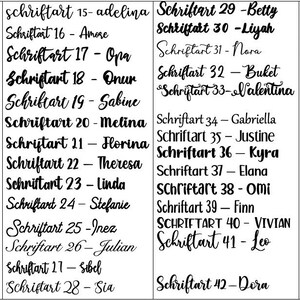 schriftart 15- adelina
Schriftart 16 - Amore
Schriftart 17 - Opa
Schriftart 18 - Onur
Schriftart 19 - Sabine
Schriftart 20 - Melina
Schriftart 21 — Florina
Schriftart 22 — Theresa
Schriftart 23 — Linda
Schriftart 24 — Stefanie
Schriftart 25 -Inez
Schriftart 26 — Julian
Schriftart 27 — Sibel
Schriftart 28 - Sia
Schriftart 29 - Betty
Schriftart 30 - Liyah
Schriftart 31 - Nora
Schriftart 32 — Buket
Schriftart 33-Valentina
Schriftart 34 — Gabriella
Schriftart 35 — Justine
Schriftart 36 — Kyra
Schriftart 37 — Elana
Schriftart 38 — Omi
Schriftart 39 — Finn
SCHRIFTART 40 - VIVIAN
Schriftart 41 — Leo
Schriftart 42 — Dora